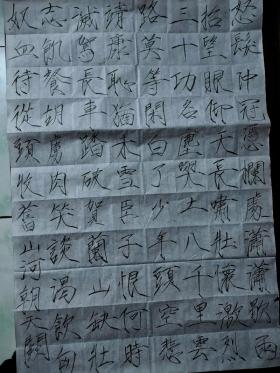 怒髮沖冠憑欄處瀟瀟歇雨
抬望眼仰天長嘯壯懷激烈
三十功名塵與土八千里雲
路莫等閑白了少年頭空悲
靖康恥猶未雪臣子恨何時
滅駕長車踏破賀蘭山缺壯
志飢餐胡虜肉笑談渴飲匈
奴血待從頭收舊山河朝天闕